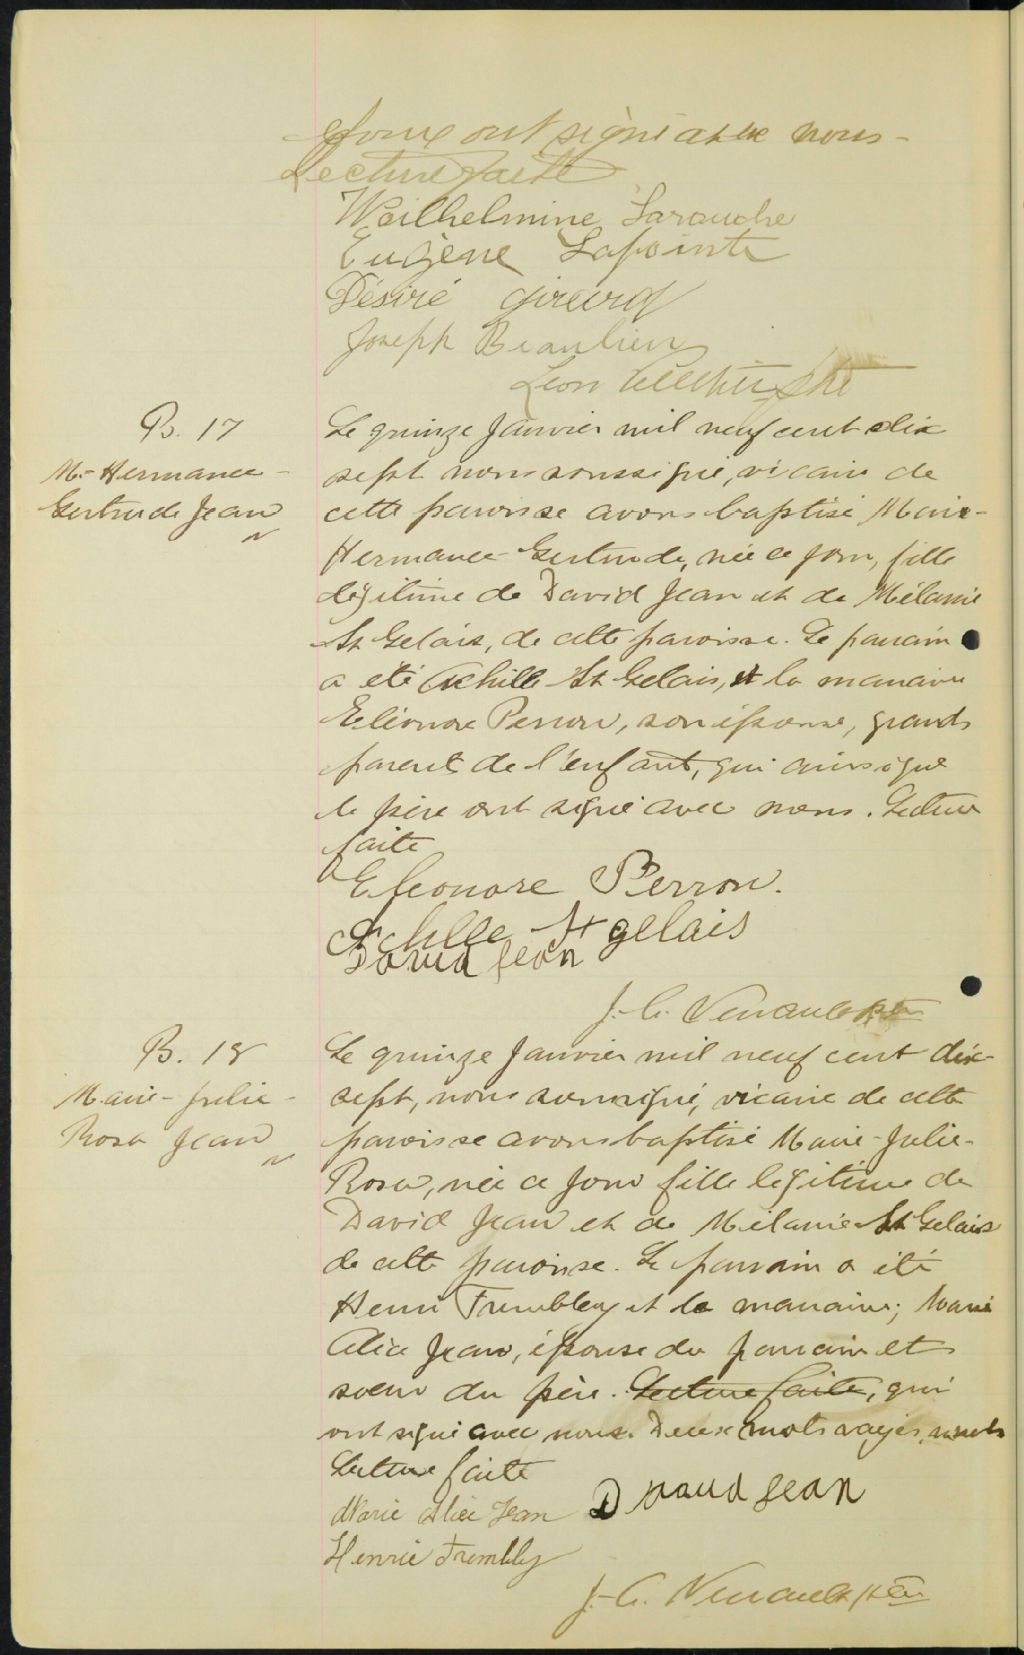 époux ont signé avec nous-
Lecture faite
Weilhelmine Larouche
Eugène Lapointe
Désiré Girard
Joseph Beaulieu
Léon ptre
B. 17
M.-Hermance-
Gertrude Jean
Le quinze Janvier mil neuf cent dix
sept nous soussigné, vicaire de
cette paroisse avons baptisé Marie-
Hermance-Gertrude, née ce jour, fille
légitime de David Jean et de Mélanie
St Gelais, de cette paroisse. Le parrain
a été Achille St Gelais, et la marraine
Eléonore Perron, son épouse, grands
parents de l'enfant, qui ainsi que
le père ont signé avec nous. Lecture
faite
Eleonore Perron.
Achille St gelais
David Jean
J.-C. ptre
B. 18
Marie-Julie-
Rosa Jean
Le quinze Janvier mil neuf cent dix-
sept, nous soussigné, vicaire de cette
paroisse avons baptisé Marie-Julie-
Rosa, née ce jour fille légitime de
David Jean et de Mélanie St Gelais
de cette paroisse. Le parrain a été
Henri Tremblay et la marraine; Marie
Alice Jean, épouse du parrain et
soeur du père. Lecture faite, qui
ont signé avec nous. Deux mots rayés nuls
Lecture faite
Marie Alice Jean David Jean
Henrie Trembly
J.-C. ptre